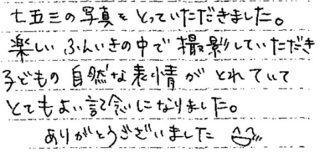 七五三の写真をとっていただきました。
楽しいふんいきの中で撮影していただき
子どもの自然な表情がとれていて
とてもよい記念になりました。
ありがとうございました